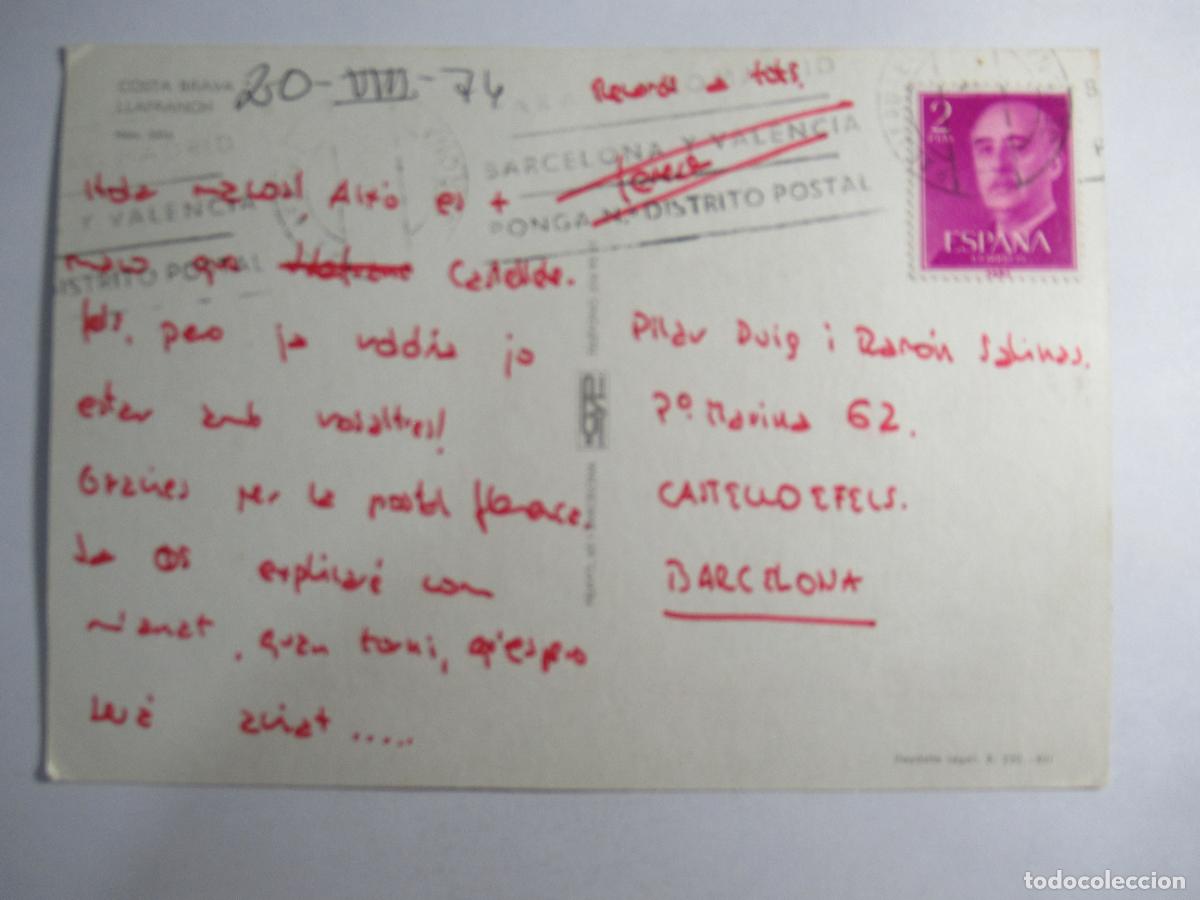 COSTA BRAVA
LLAFRANCH
20-VIII-74
Records a tots.
MADRID
BARCELONA Y VALENCIA
PONGA N.º DISTRITO POSTAL
MADRID
Y VALENCIA
DISTRITO POSTAL
2
PTAS
ESPAÑA
CORREOS
Hola macos! Això es +
maco que Castelldefels, pero ja voldria jo
estar amb vosaltres!
Gràcies per la postal
Ja os explicaré com
m'anat, quan torni, q'espero
serà aviat .....
Pilar Puig i Ramón Salinas.
Pº. Marina 62.
CASTELLDEFELS.
BARCELONA
todocoleccion